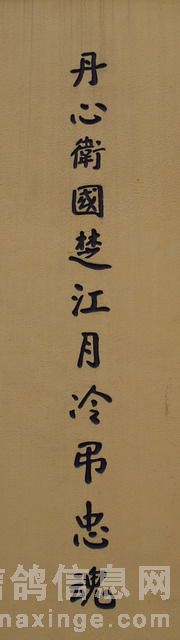 丹心衛國楚江月冷弔忠魂
信鸽信息网
naxinge.com